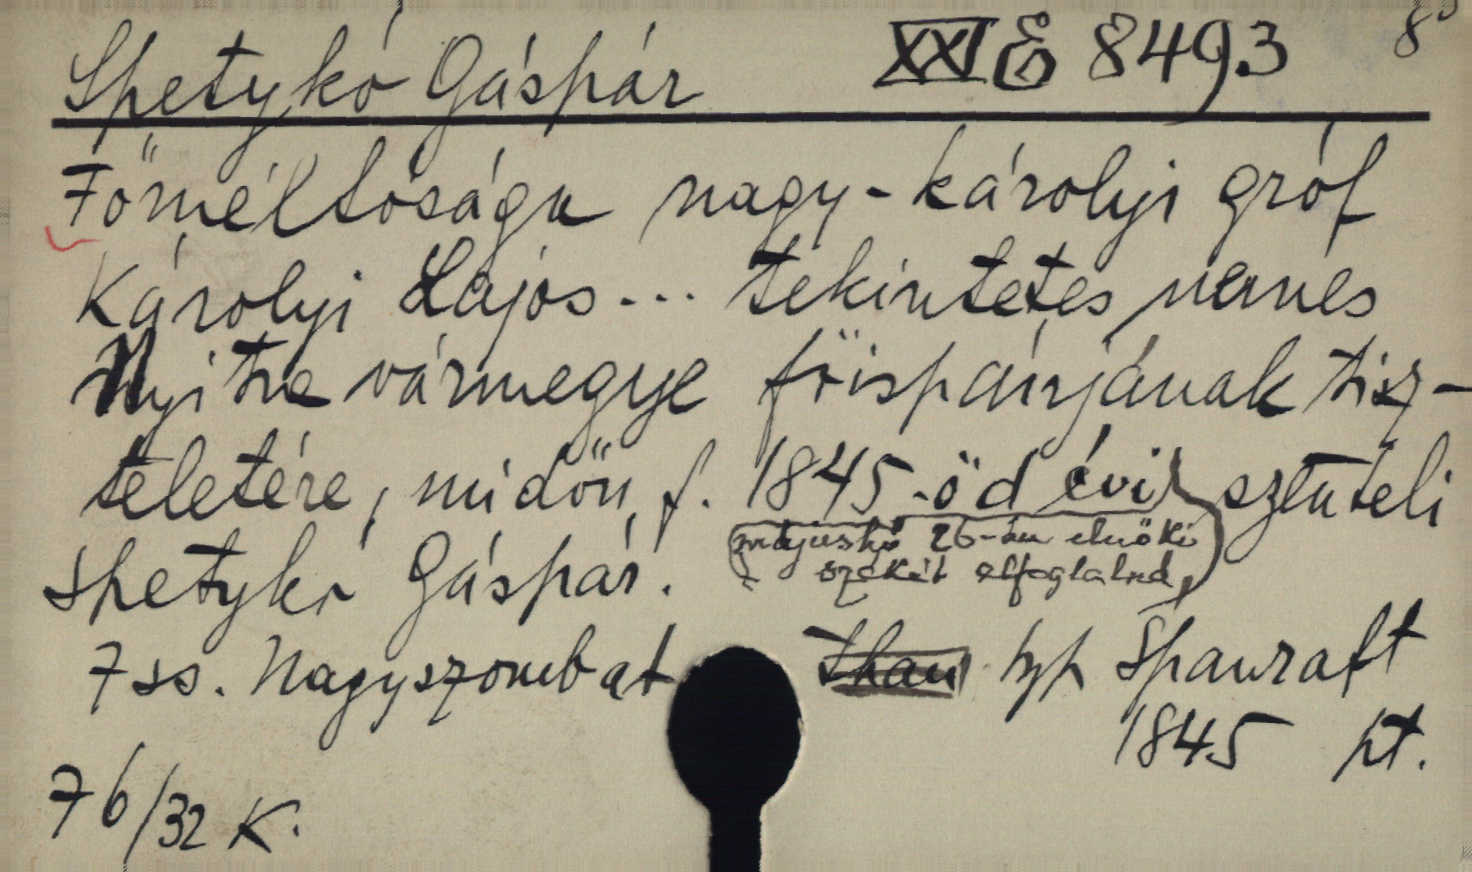 Spetykó Gáspár XXI E 849.3 8°
Főméltóságu nagy-károlyi gróf
Károlyi Lajos... tekintetes nemes
Nyitra vármegye főispánjának tisz-
teletére, midőn f. 1845-öd évi szenteli
májushó 26-án elnöki
székét elfoglalná,
Spetykó Gáspár.
7 ss. Nagyszombat typ Spanraft
1845 pt.
76/32 K.